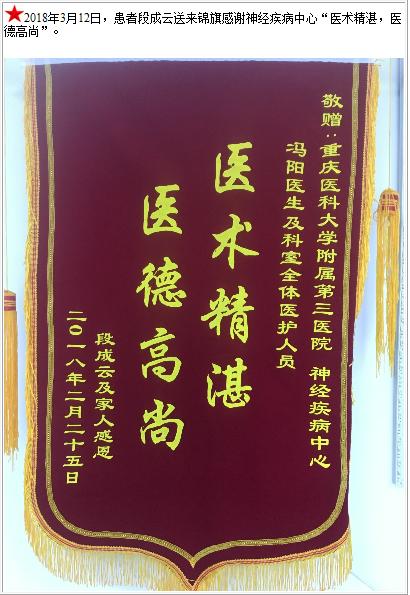 ★2018年3月12日，患者段成云送来锦旗感谢神经疾病中心“医术精湛，医
德高尚”。
敬赠：重庆医科大学附属第三医院 神经疾病中心
冯阳医生及科室全体医护人员
医术精湛
医德高尚
段成云及家人感恩
二〇一八年二月二十五日